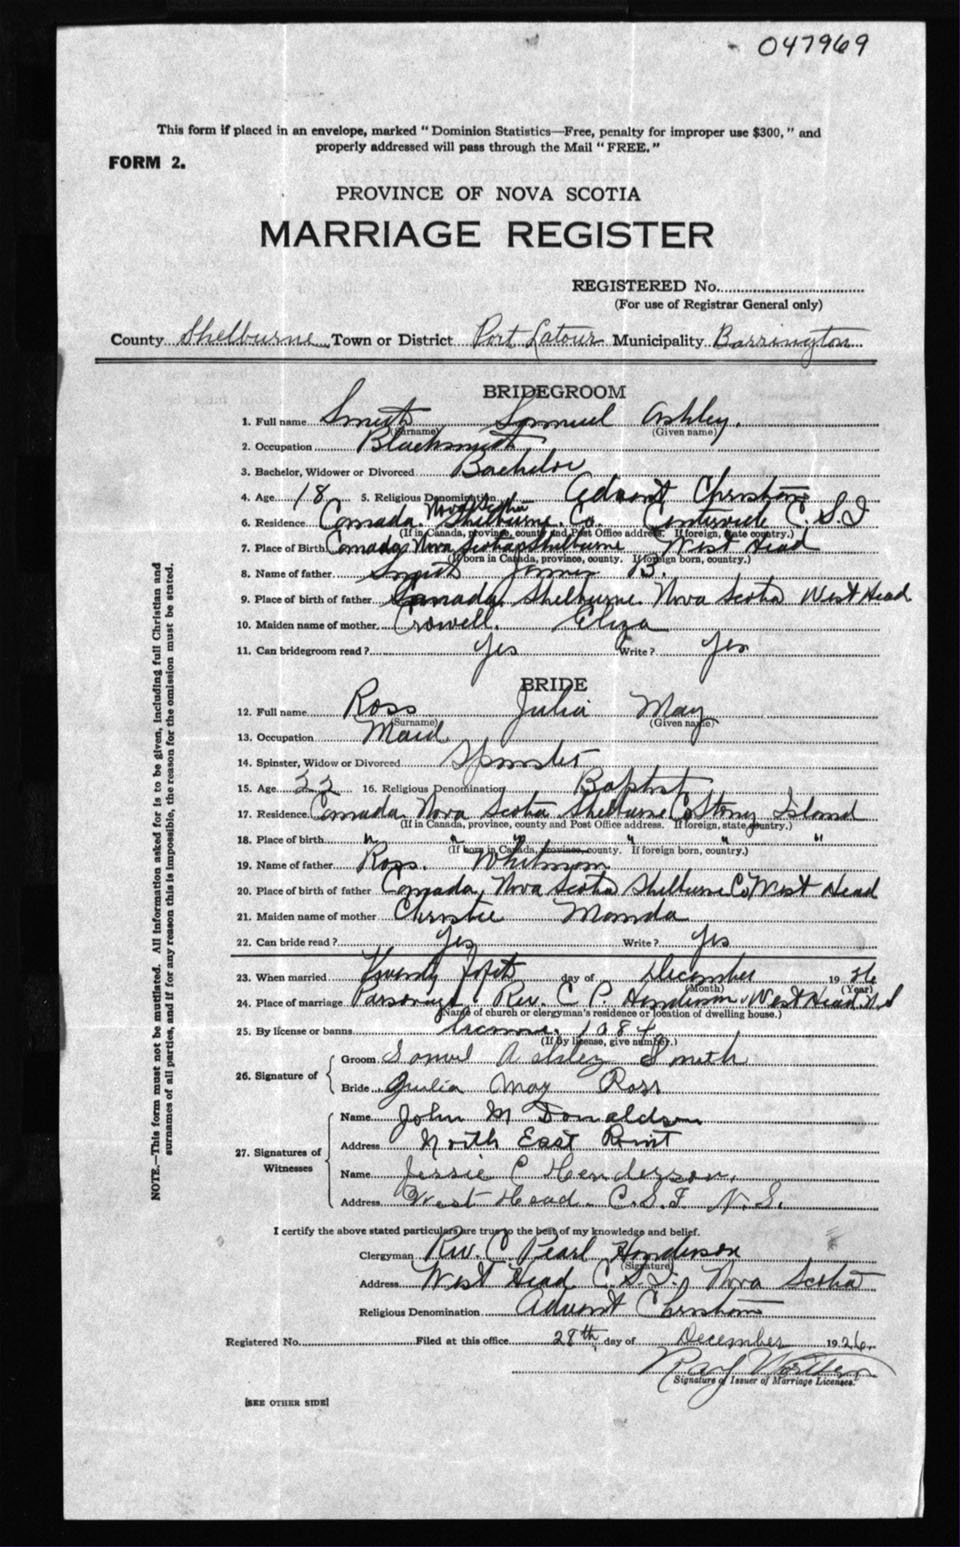 047969
This form if placed in an envelope, marked "Dominion Statistics—Free, penalty for improper use $300," and
properly addressed will pass through the Mail "FREE."
FORM 2.
PROVINCE OF NOVA SCOTIA
MARRIAGE REGISTER
REGISTERED No.
(For use of Registrar General only)
County Shelburne Town or District Port Latour Municipality Barrington
BRIDEGROOM
1. Full name Smith Samuel Ashley.
(Surname) (Given name)
2. Occupation Blacksmith
3. Bachelor, Widower or Divorced Bachelor
4. Age 18 5. Religious Denomination Advent Christian
6. Residence Canada. Nova Scotia Shelburne Co. Centreville C.S.I
(If in Canada, province, county and Post Office address. If foreign, state country.)
7. Place of Birth Canada, Nova Scotia Shelburne West Head
(If born in Canada, province, county. If foreign born, country.)
8. Name of father Smith B.
9. Place of birth of father Canada, Shelburne. Nova Scotia West Head
10. Maiden name of mother Crowell. Eliza
11. Can bridegroom read? Yes Write? Yes
BRIDE
12. Full name Ross Julia May
(Surname) (Given name)
13. Occupation Maid
14. Spinster, Widow or Divorced Spinster
15. Age 22 16. Religious Denomination Baptist
17. Residence Canada Nova Scotia Shelburne Co Stony Island
(If in Canada, province, county and Post Office address. If foreign, state country.)
18. Place of birth " " " " "
(If born in Canada, province, county. If foreign born, country.)
19. Name of father Ross. Whitman
20. Place of birth of father Canada, Nova Scotia Shelburne Co West Head
21. Maiden name of mother Christie Manda
22. Can bride read? Yes Write? Yes
23. When married Twenty day of December 1926
(Month) (Year)
24. Place of marriage Parsonage Rev. C P. Henderson West Head N S
(Name of church or clergyman's residence or location of dwelling house.)
25. By license or banns License. 1084
(If by license, give number.)
26. Signature of
Groom Samuel Ashley Smith
Bride Julia May Ross
27. Signatures of Witnesses
Name John M Donaldson
Address North East Point
Name Jessie C Henderson.
Address West Head. C.S.I N.S.
I certify the above stated particulars are true to the best of my knowledge and belief.
Clergyman Rev. C Pearl Henderson
(Signature)
Address West Head C.S.I. Nova Scotia
Religious Denomination Advent Christian
Registered No. Filed at this office 28th day of December 1926.
Signature of Issuer of Marriage Licenses.
[SEE OTHER SIDE]
NOTE.—This form must not be mutilated. All information asked for is to be given, including full Christian and
surnames of all parties, and if for any reason this is impossible, the reason for the omission must be stated.